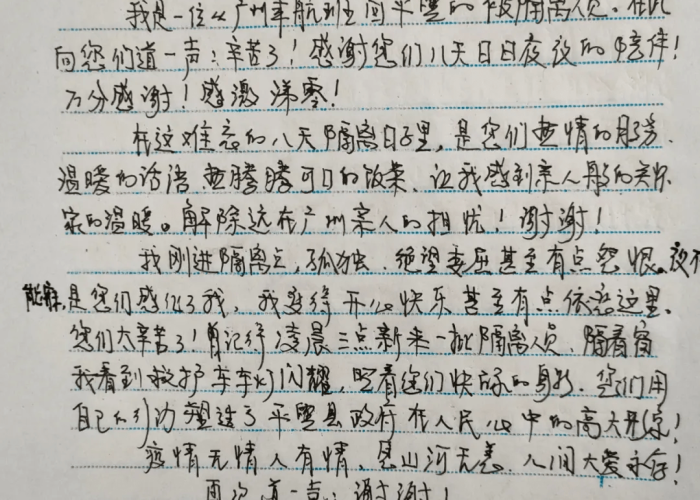 我是一位从广州乘航班回平舆的被隔离人员。在此
向您们道一声：辛苦了！感谢您们八天日日夜夜的陪伴！
万分感谢！感激涕零！
在这难忘的八天隔离日子里，是您们热情的服务、
温暖的话语、热腾腾可口的饭菜，让我感到亲人般的关怀
家的温暖。解除远在广州亲人的担忧！谢谢！
我刚进隔离点，孤独、绝望委屈甚至有点怨恨。夜不
能寐，是您们感化了我，我变得开心快乐甚至有点依恋这里。
您们太辛苦了！曾记得凌晨三点新来一批隔离人员、隔着窗
我看到救护车车灯闪耀，照着您们快乐的身影。您们用
自己的行动塑造了平舆县政府在人民心中的高大形象！
疫情无情人有情，愿山河无恙、人间大爱永存！
再次道一声：谢谢！